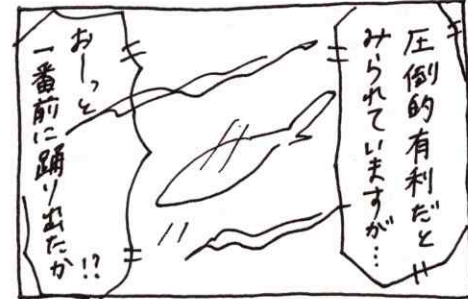 圧倒的有利だと
みられていますが…
おーっと
一番前に踊り出たか!?